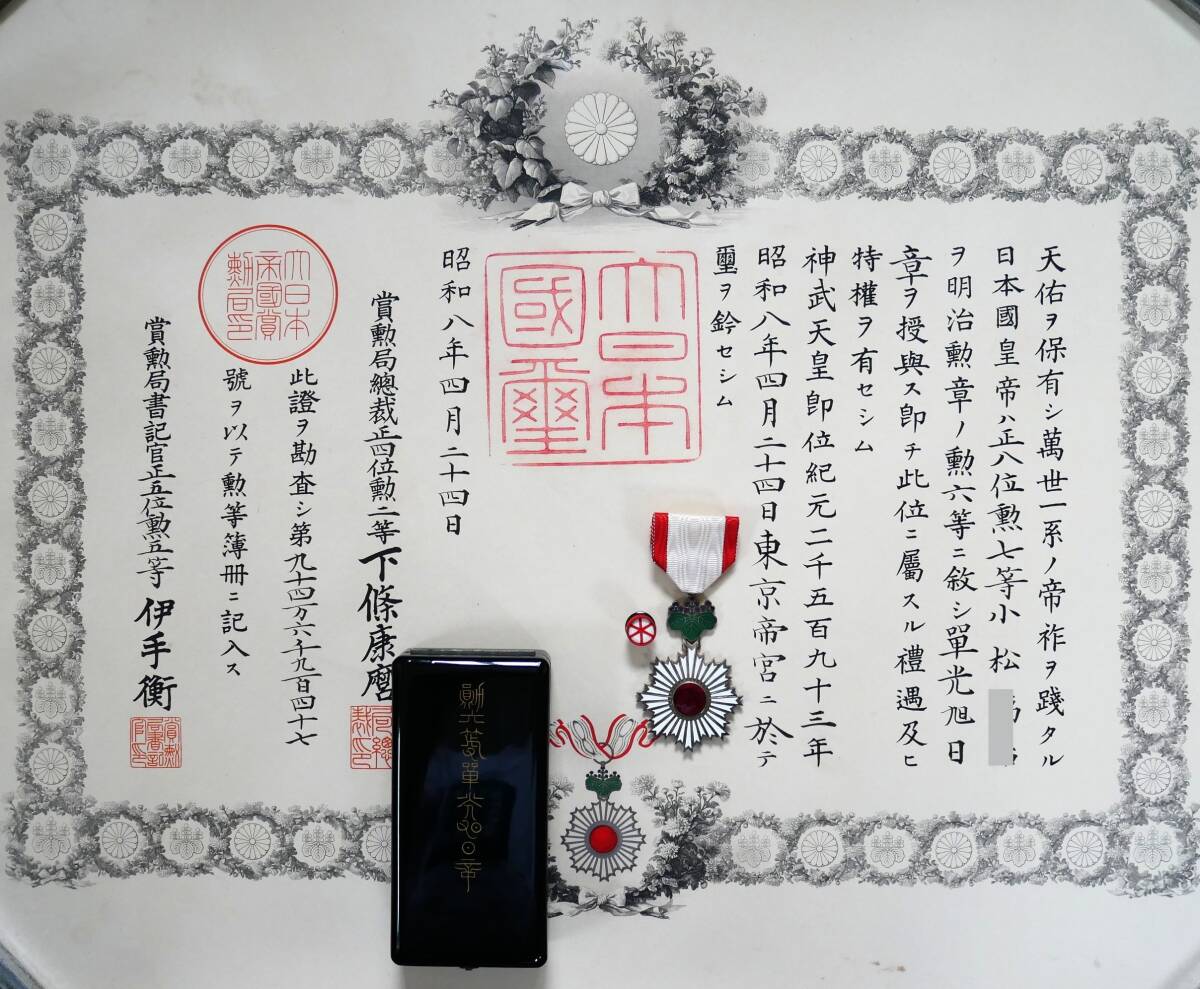 天佑ヲ保有シ萬世一系ノ帝祚ヲ踐タル
日本國皇帝ハ正八位勲七等小松
ヲ明治勲章ノ勲六等ニ敘シ單光旭日
章ヲ授與ス卽チ此位ニ屬スル禮遇及ヒ
特權ヲ有セシム
神武天皇卽位紀元二千五百九十三年
昭和八年四月二十四日東京帝宮ニ於テ
璽ヲ鈐セシム
大日本
國璽
昭和八年四月二十四日
賞勲局總裁正四位勲二等下條康麿
此證ヲ勘査シ第九十四万六千九百四十七
號ヲ以テ勲等簿冊ニ記入ス
大日本
帝國賞
勲局印
賞勲局書記官正五位勲五等伊手衡
賞勲
局書記
官印
勲六等單光旭日章